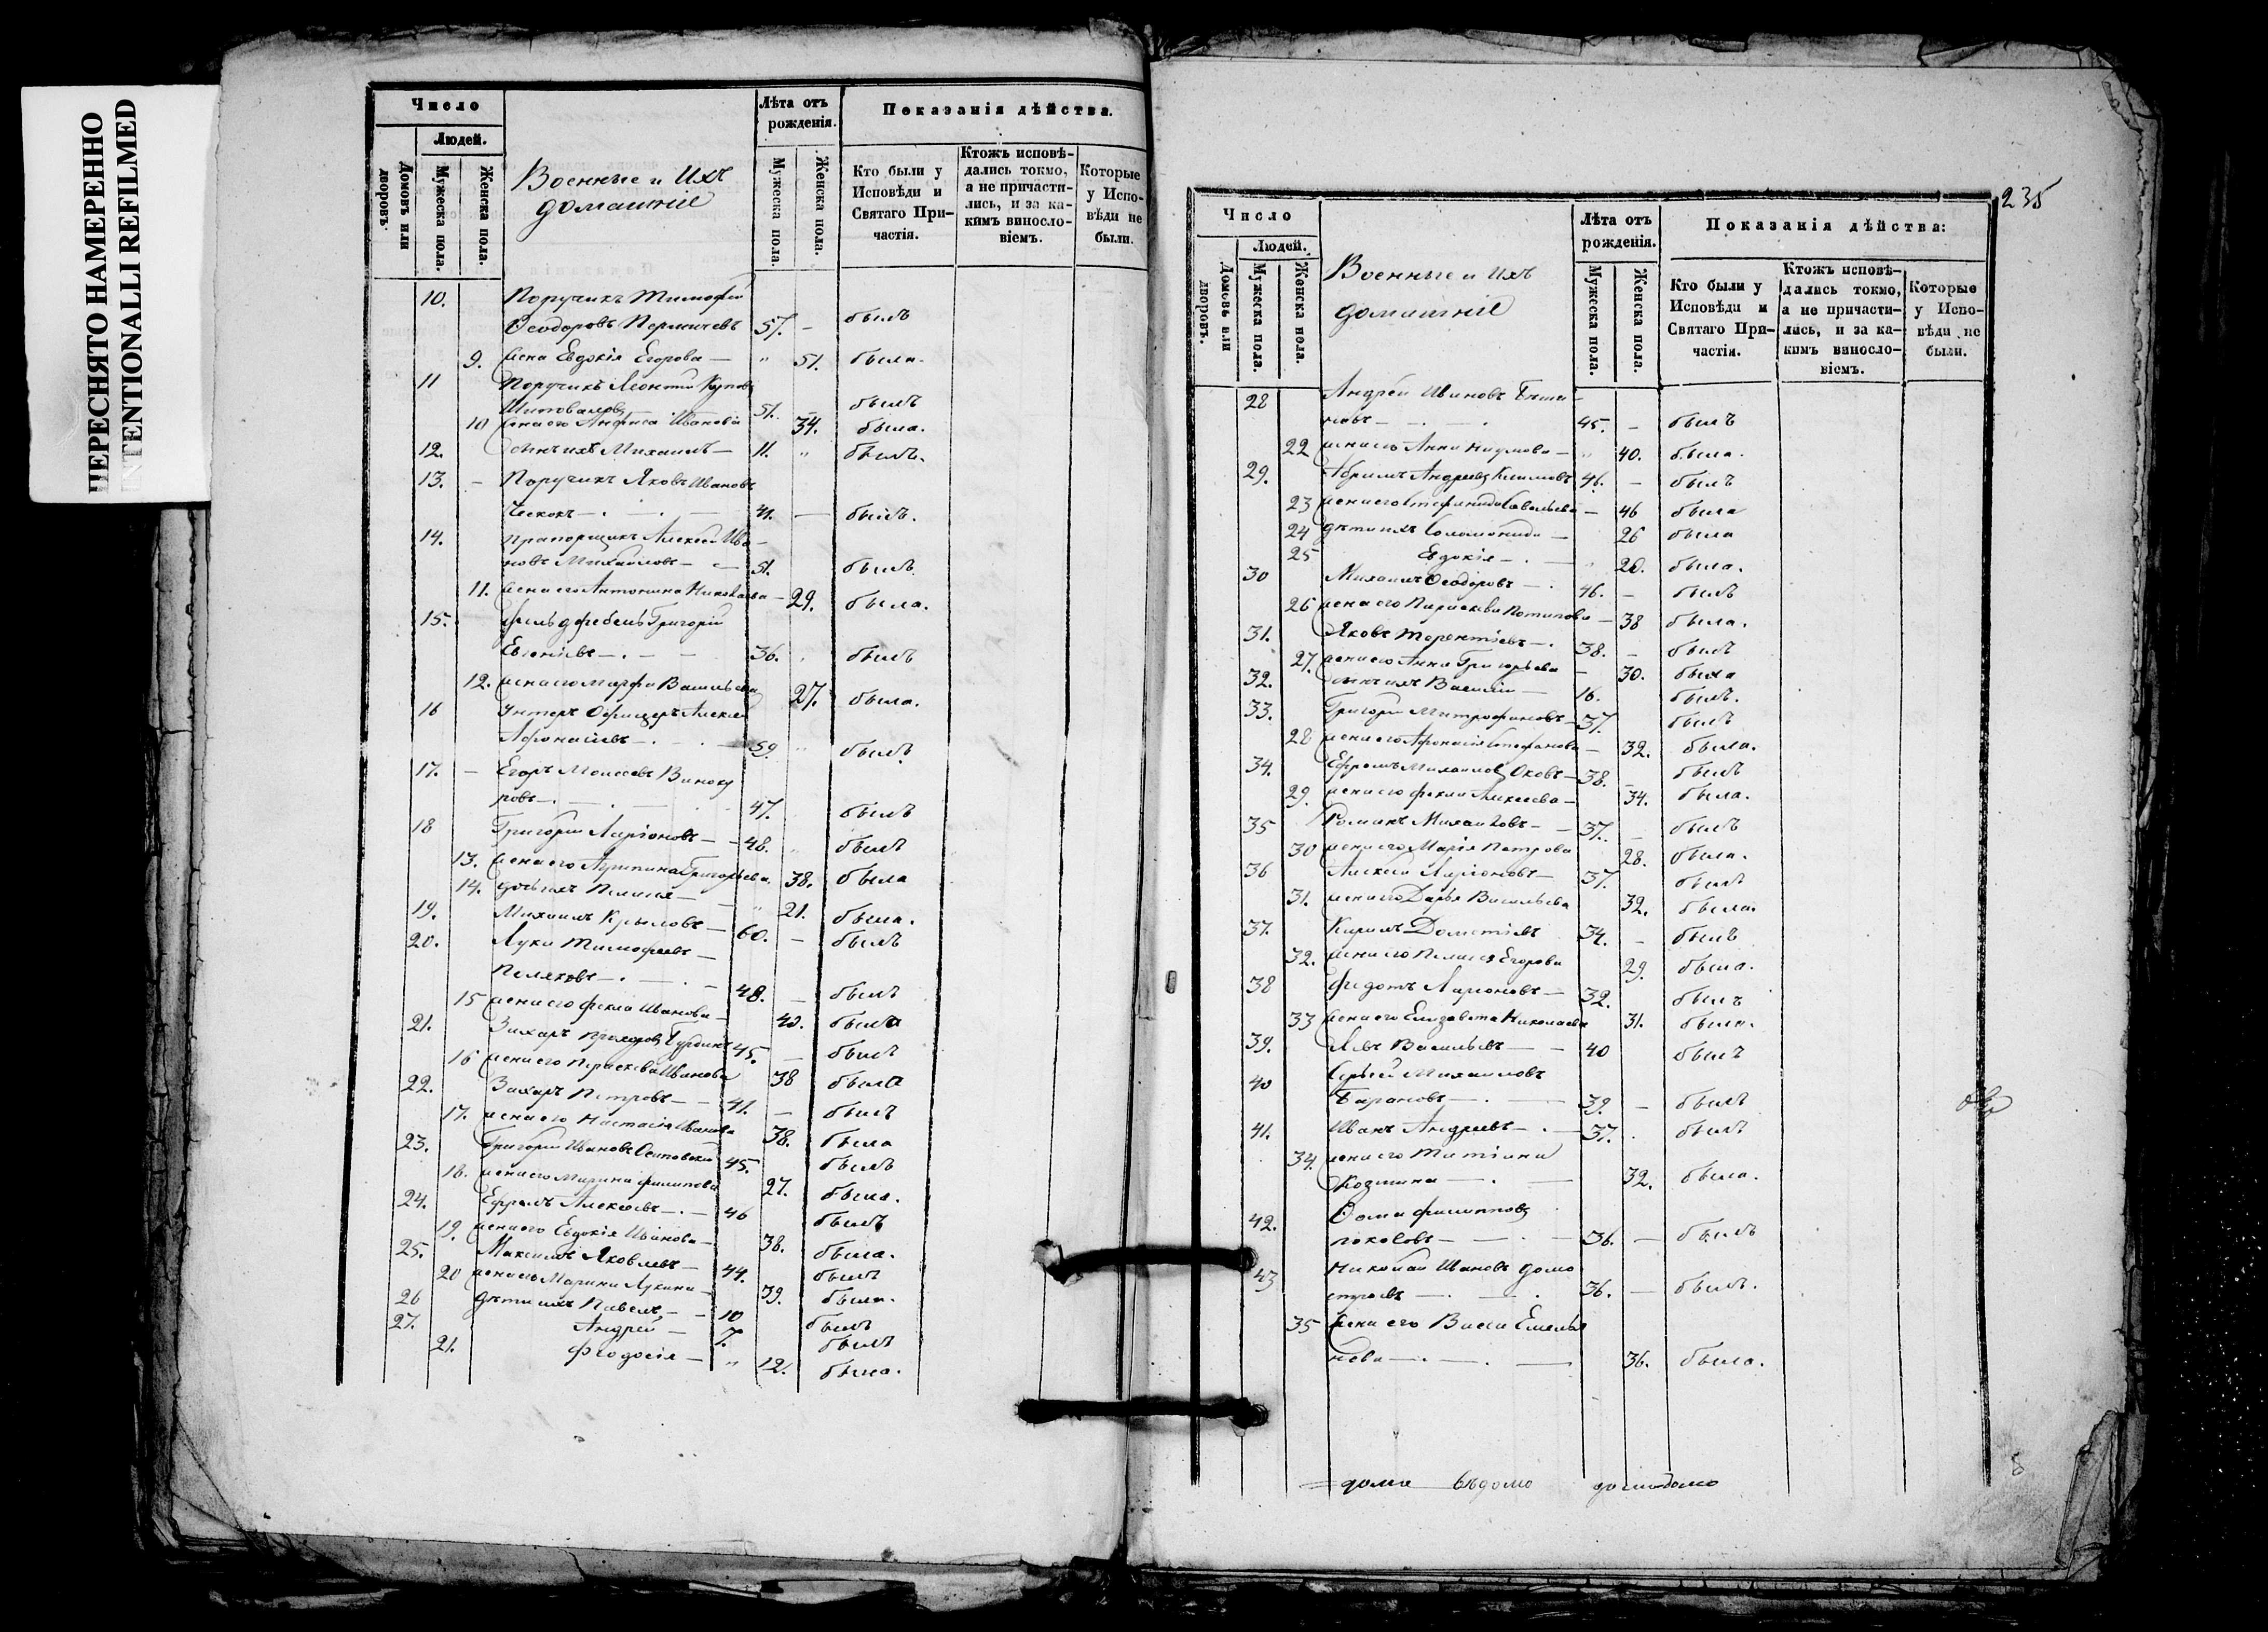 ПЕРЕСНЯТО НАМЕРЕННО
INTENTIONALLI REFILMED
Число
Людей.
Домовъ или дворовъ.
Мужеска пола.
Женска пола.
Военные и Ихъ
домашніе
Лѣта отъ рожденія.
Мужеска пола.
Женска пола.
Показанія дѣйства.
Кто были у Исповѣди и Святаго Причастія.
Ктожъ исповѣдались токмо, а не причастились, и за какимъ винословіемъ.
Которые у Исповѣди не были.
10. Поручикъ Тимофей
Ѳеодоровъ 57. – былъ
9. жена Евдокія Егорова – " 51. была.
11 Поручикъ Леонтій
51. былъ
10 жена его Анфиса Иванова 34. была.
12. сынъ ихъ Михаилъ – 11. " былъ.
13. – Поручикъ Яковъ Ивановъ
41. – былъ.
14. прапорщикъ Алексѣй Ива–
новъ Михайловъ – 51. былъ
11. жена его Антонина Николаева – 29. была.
15. фельдфебель Григорій
36. былъ
12. жена его Марфа Васильева 27. была.
16 Унтеръ Офицеръ Алексѣй
Афонасьевъ – 59 былъ
17. – Егоръ Моисеевъ Виноку
ровъ – 47. былъ
18 Григорій Ларіоновъ – 48. былъ
13. жена его Григорьева 38. была
14. дочь ихъ Пелагея – " 21. была.
19. Михаилъ Крыловъ – 60. – былъ
20. Лука Тимофеевъ –
Поляковъ – 48. – былъ
15 жена его Фекла Иванова – 40. была
21. Захаръ Прохоровъ 45. – былъ
16 жена его Параскева Иванова 38 была
22. Захаръ Петровъ – 41. – былъ
17. жена его Настасія Иванова 38. была
23. Григорій Ивановъ Осиповскій 45. былъ
18. жена его Марина Филипова 27. была.
24. Ефремъ Алексеевъ – 46 былъ
19. жена его Евдокія Иванова – 38. была.
25. Максимъ Яковлевъ – 44. былъ
20 жена его Марина Лукина – 39. была.
26 дѣти ихъ Павелъ – 10 былъ
27. Андрей – 7. былъ
21. Феодосія – " 12. была.
235
Число
Людей.
Домовъ или дворовъ.
Мужеска пола.
Женска пола.
Военные и Ихъ
домашніе
Лѣта отъ рожденія.
Мужеска пола.
Женска пола.
Показанія дѣйства:
Кто были у Исповѣди и Святаго Причастія.
Ктожъ исповѣдались токмо, а не причастились, и за какимъ винословіемъ.
Которые у Исповѣди не были.
28 Андрей Ивановъ
новъ – 45. – былъ
22 жена его Анна Наумова – " 40. была.
29. Абрамъ Андреевъ Климовъ 46. – былъ
23 жена его Стефанида Савельева – 46 была
24 дѣти ихъ Соломонида – 26 была
25 Евдокія – 20. была.
30 Михаилъ Ѳеодоровъ – 46. – былъ
26 жена его Параскева Потапова – 38 была.
31. Яковъ Терентіевъ – 38. – былъ
27. жена его Анна Григорьева – 30. была
32. сынъ ихъ Василій – 16. былъ.
33. Григорій Митрофановъ – 37. былъ
28 жена его Афонасія Стефанова – 32. была.
34. Ефремъ Михаиловъ – 38. – былъ
29. жена его Фекла Алексеева – 34. была.
35 Романъ Михаиловъ – 37. – былъ
30 жена его Марія Петрова 28. была.
36 Алексѣй Ларіоновъ – 37. былъ
31. жена его Дарья Васильева 32. была.
37. Кирилъ 34. – былъ
32. жена его Пелагея Егорова 29. была.
38 Федотъ Ларіоновъ – 32. былъ
33 жена его Елизавета Николаева 31. была.
39. Левъ Васильевъ – 40 былъ
40 Сергѣй Михаиловъ
Барановъ – 39. – былъ
41. Иванъ Андреевъ – 37. былъ
34. жена его Татіана
Козмина – 32. была.
42. Ѳома Филипповъ
36. – былъ
43 Николай Ивановъ Домо
строевъ – 36. – былъ.
35 жена его Васса Емелья
нова – 36. была.